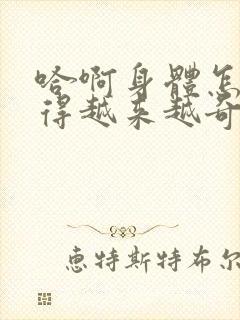 哈啊身體怎
得越来越奇
惠特斯特布尔